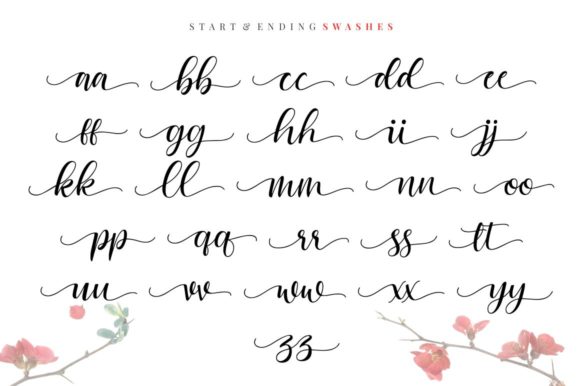 START & ENDING SWASHES
aa bb cc dd ee
ff gg hh ii jj
kk ll mm nn oo
pp qq rr ss tt
uu vv ww xx yy
zz